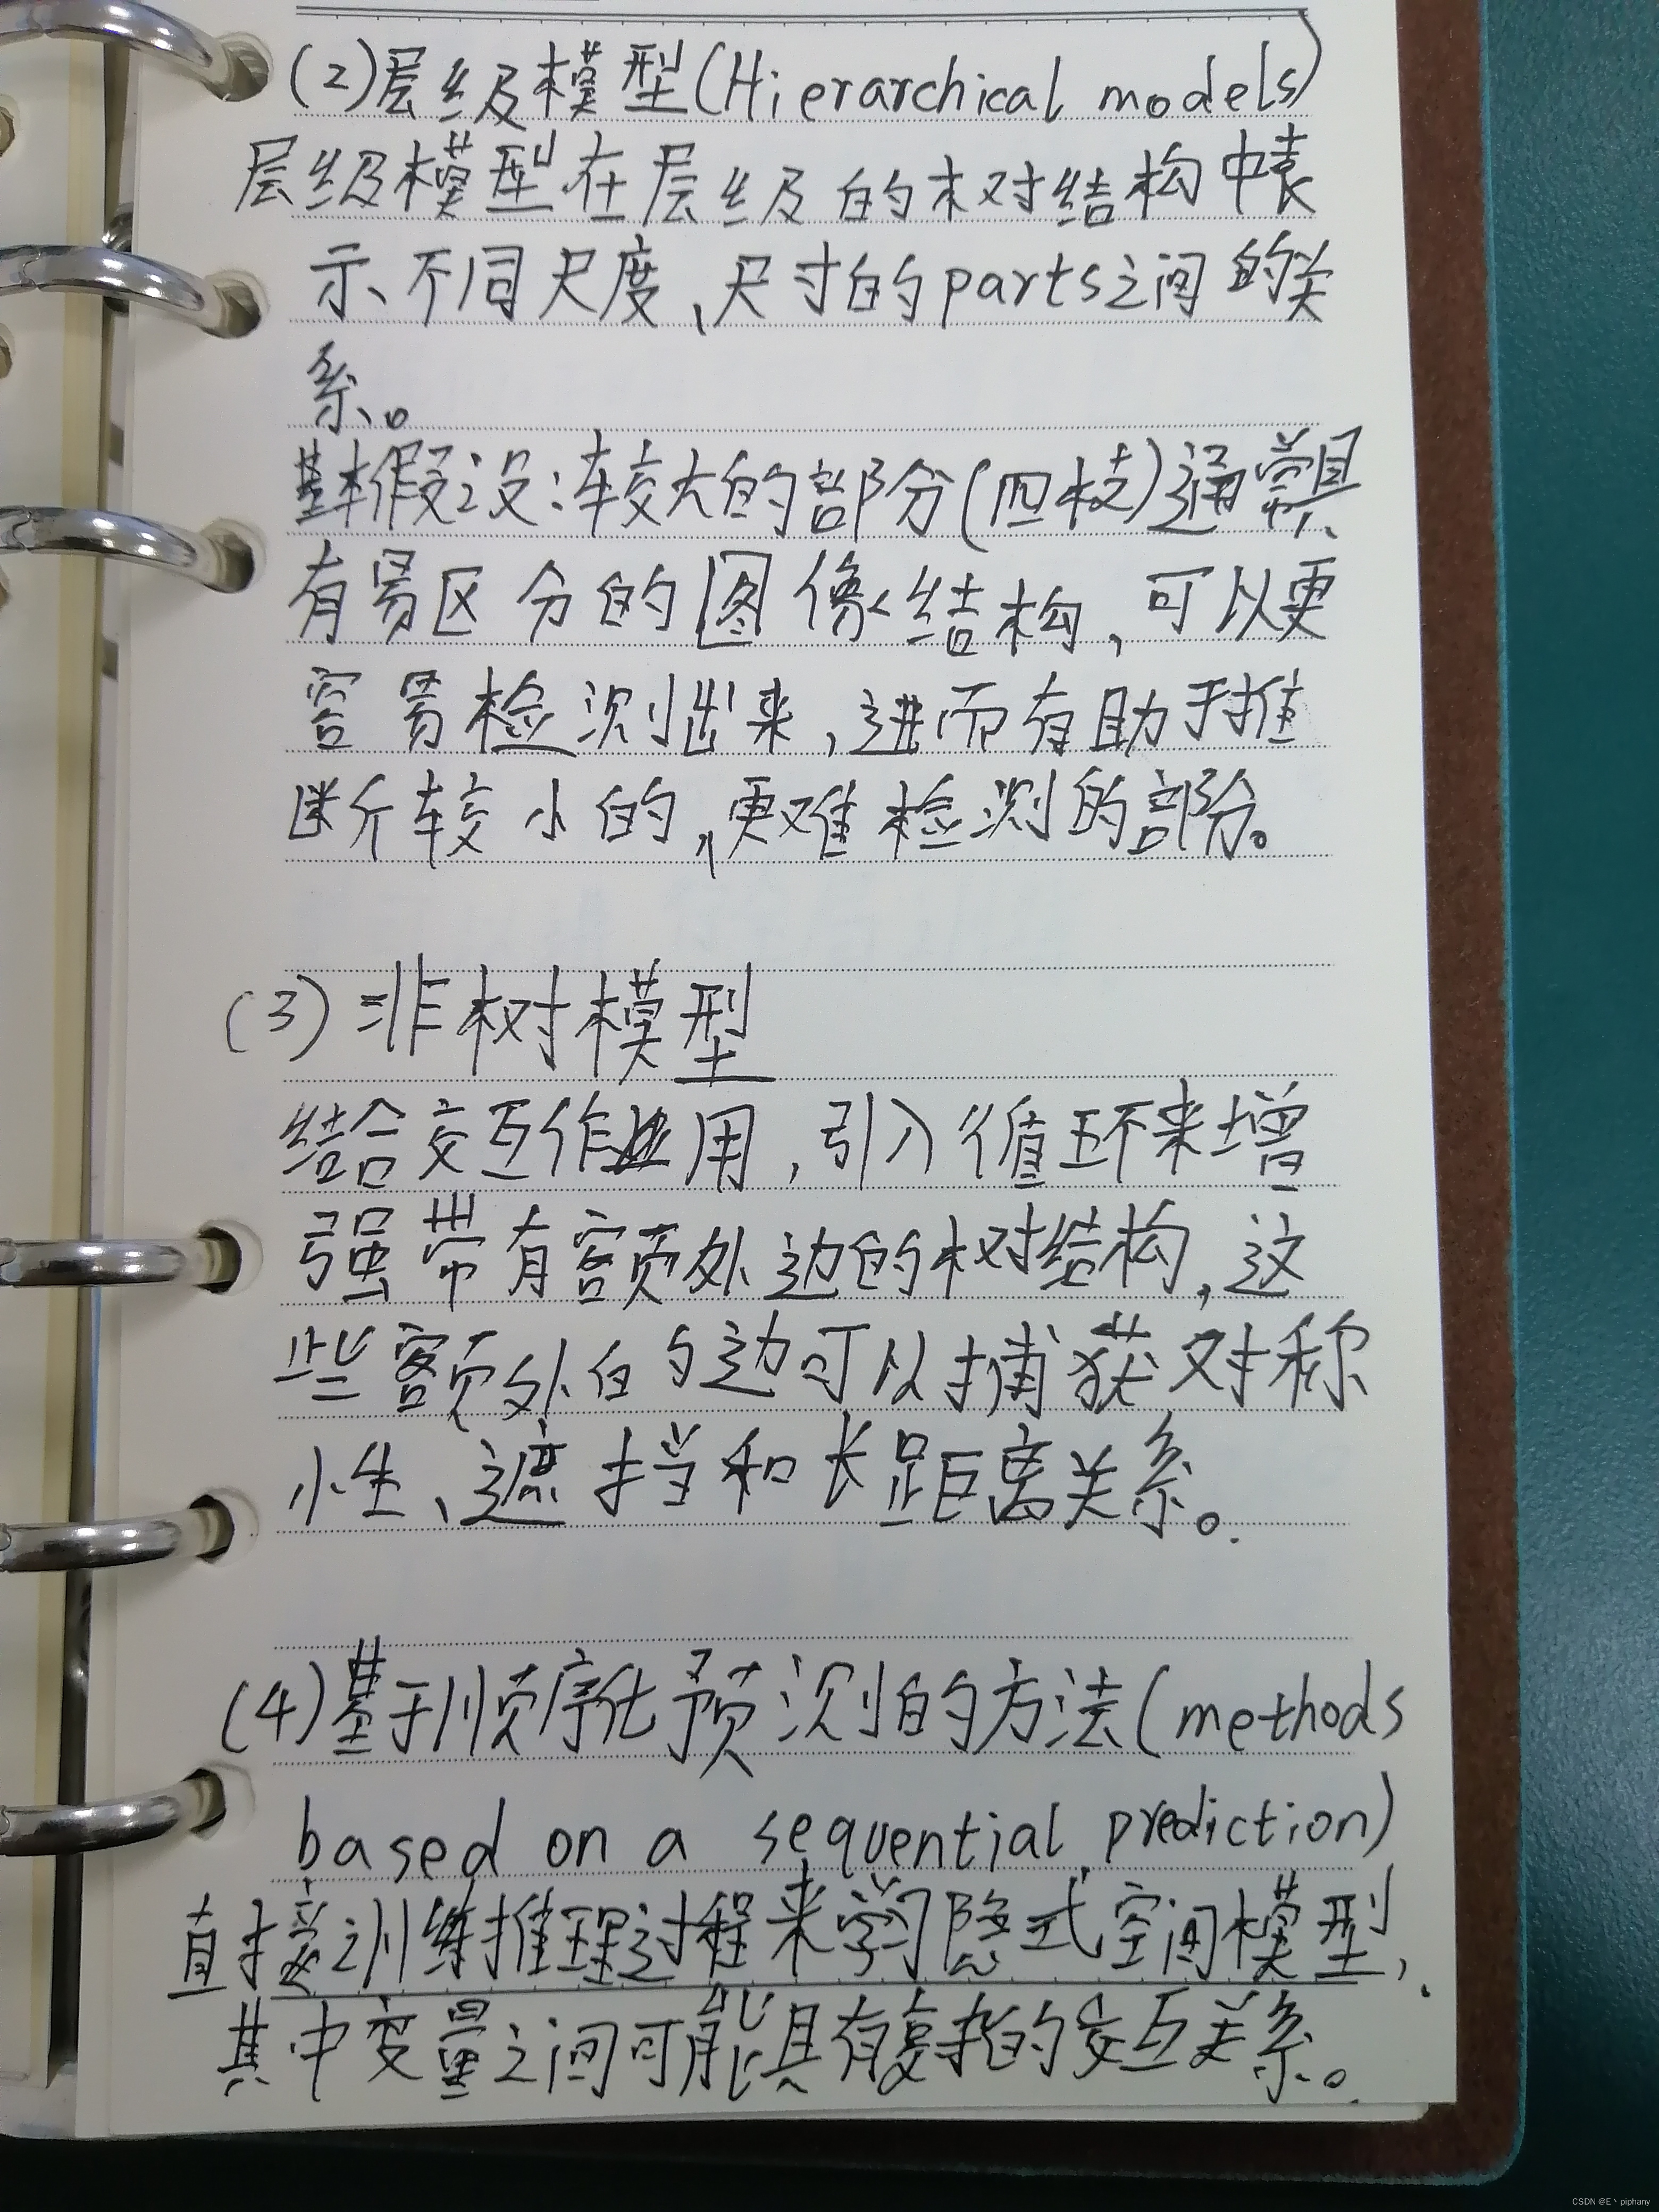 (2)层级模型(Hierarchical models)
层级模型在层级的树结构中表
示不同尺度、尺寸的parts之间的关
系。
基本假设:较大的部分(四枝)通常具
有易区分的图像结构,可以更
容易检测出来,进而有助于推
断较小的,更难检测的部分。
(3)非树模型
结合交互作用,引入循环来增
强带有额外边的树结构,这
些额外的边可以捕获对称
性、遮挡和长距离关系。
(4)基于顺序化预测的方法(methods
based on a sequential prediction)
直接训练推理过程来学习隐式空间模型,
其中变量之间可能具有复杂的交互关系。
CSDN @E丶piphany